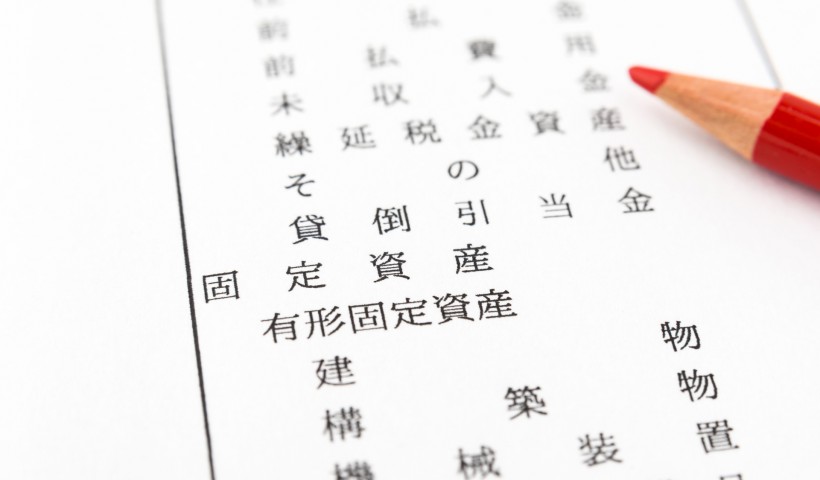 前 払 金
前 払 費 用
未 収 入 金
繰 延 税 金 資 産
そ の 他
貸 倒 引 当 金
固 定 資 産
有形固定資産
建 物
構 築 物
機 械 装 置